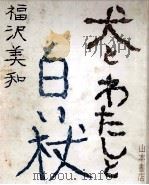 犬とわたしと
白い杖
福沢美和
山本書店